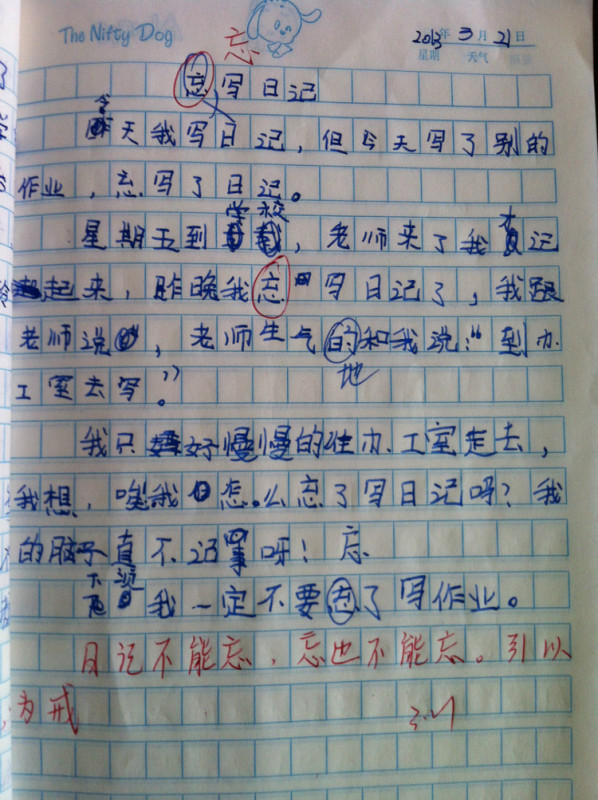 The Nifty Dog
2013年3月21日
星期 天气
忘
忘写日记
今
昨天我写日记，但今天写了别的
作业，忘写了日记。
学校
星期五到，老师来了我才记
起来，昨晚我忘写日记了，我跟
老师说，老师生气的和我说：“到办
地
工室去写。”
我只好慢慢的往办工室走去，
我想，唉我怎么忘了写日记吗？我
的脑子真不记事呀！忘
下
我一定不要忘了写作业。
日记不能忘，忘也不能忘。引以
为戒